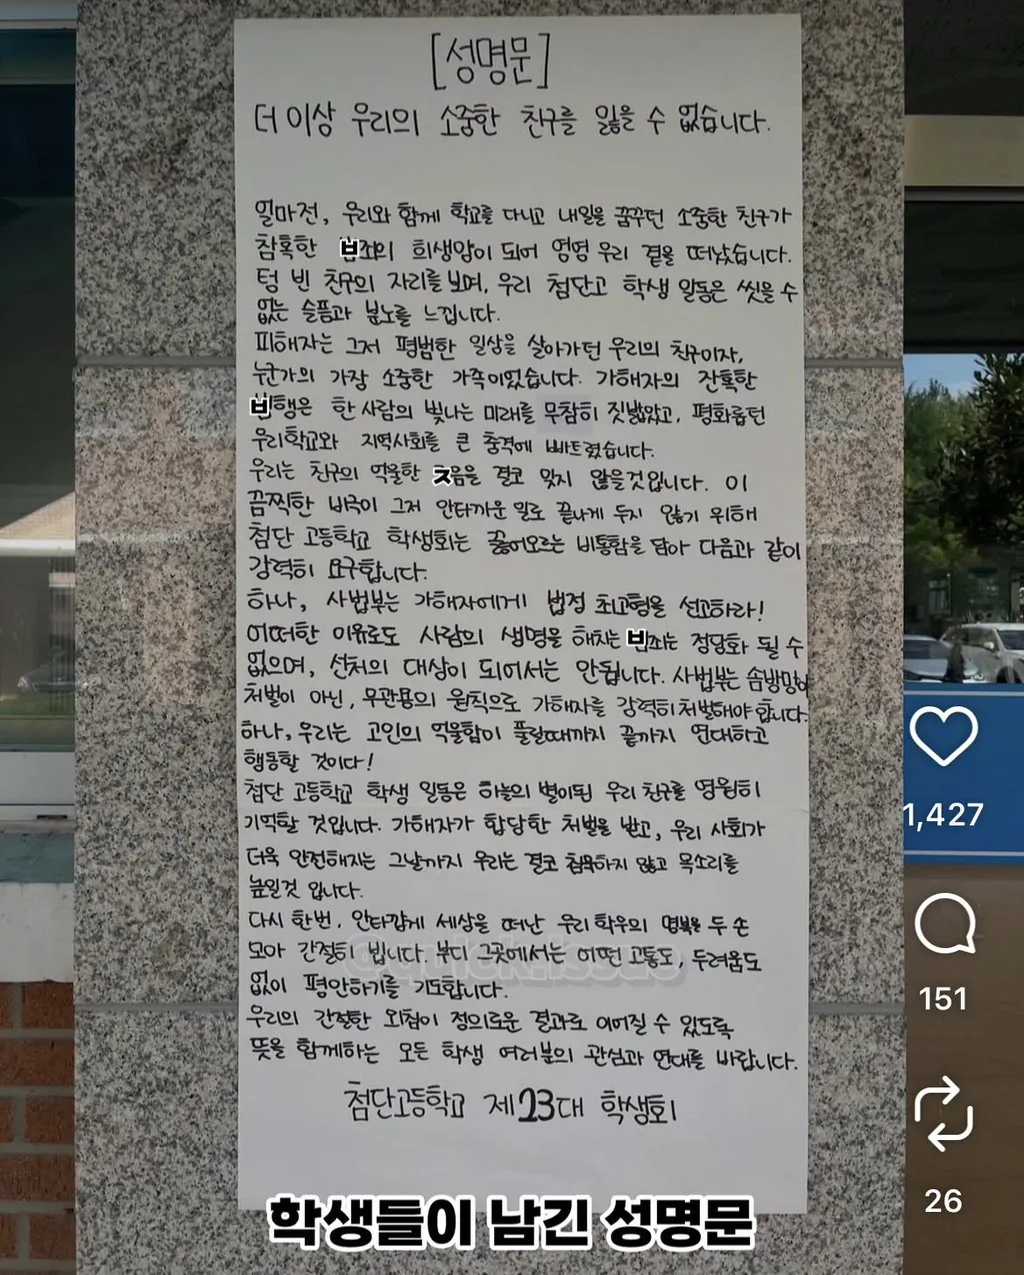 [성명문]
더 이상 우리의 소중한 친구를 잃을 수 없습니다.
얼마전, 우리와 함께 학교를 다니고 내일을 꿈꾸던 소중한 친구가
참혹한 ㅂ죄의 희생양이 되어 영영 우리 곁을 떠났습니다.
텅 빈 친구의 자리를 보며, 우리 첨단고 학생 일동은 씻을 수
없는 슬픔과 분노를 느낍니다.
피해자는 그저 평범한 일상을 살아가던 우리의 친구이자,
누군가의 가장 소중한 가족이었습니다. 가해자의 잔혹한
ㅂ행은 한 사람의 빛나는 미래를 무참히 짓밟았고, 평화롭던
우리학교와 지역사회를 큰 충격에 빠트렸습니다.
우리는 친구의 억울한 ㅈ음을 결코 잊지 않을것입니다. 이
끔찍한 비극이 그저 안타까운 일로 끝나게 두지 않기 위해
첨단 고등학교 학생회는 끓어오르는 비통함을 담아 다음과 같이
강력히 요구합니다.
하나, 사법부는 가해자에게 법정 최고형을 선고하라!
어떠한 이유로도 사람의 생명을 해치는 ㅂ죄는 정당화 될 수
없으며, 선처의 대상이 되어서는 안됩니다. 사법부는 솜방망이
처벌이 아닌, 무관용의 원칙으로 가해자를 강력히 처벌해야 합니다.
하나, 우리는 고인의 억울함이 풀릴때까지 끝까지 연대하고
행동할 것이다!
첨단 고등학교 학생 일동은 하늘의 별이된 우리 친구를 영원히
기억할 것입니다. 가해자가 합당한 처벌을 받고, 우리 사회가
더욱 안전해지는 그날까지 우리는 결코 침묵하지 않고 목소리를
높일것 입니다.
다시 한번, 안타깝게 세상을 떠난 우리 학우의 명복을 두 손
모아 간절히 빕니다. 부디 그곳에서는 어떤 고통도, 두려움도
없이 평안하기를 기도합니다.
우리의 간절한 외침이 정의로운 결과로 이어질 수 있도록
뜻을 함께하는 모든 학생 여러분의 관심과 연대를 바랍니다.
첨단고등학교 제23대 학생회
@quick.issue
학생들이 남긴 성명문
1,427
151
26